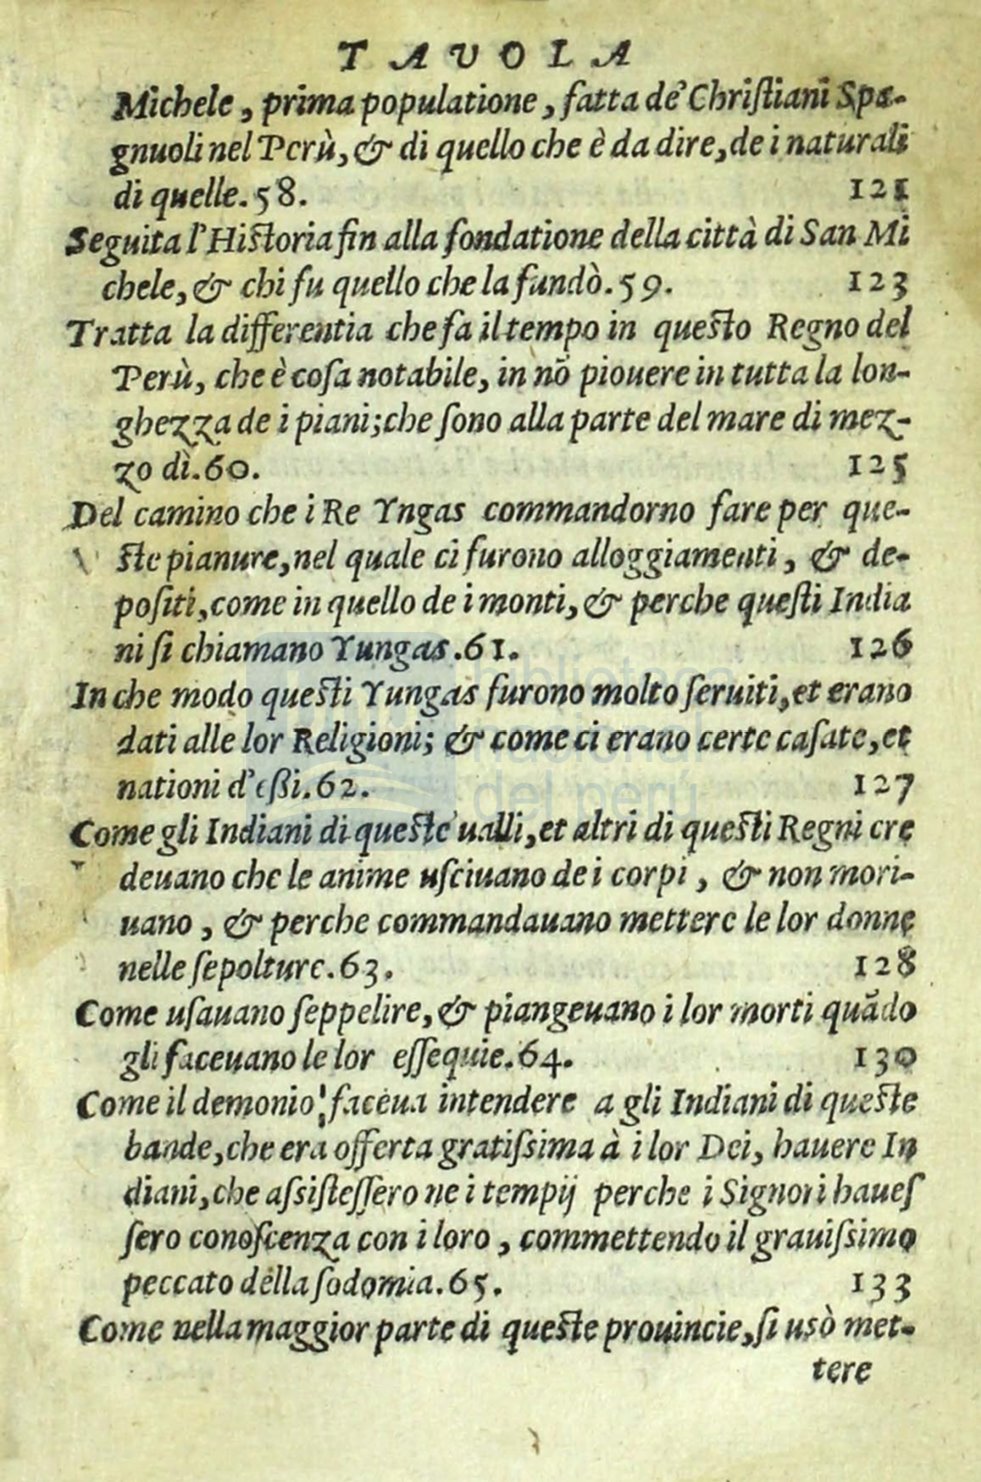 TAVOLA
Michele, prima populatione, fatta de' Chriſtiani Spa-
gnuoli nel Perù, & di quello che è da dire, de i naturali
di quelle. 58. 121
Seguita l'Hiſtoria fin alla fondatione della città di San Mi
chele, & chi fu quello che la fundò. 59. 123
Tratta la differentia che fa il tempo in queſto Regno del
Perù, che è coſa notabile, in nō piouere in tutta la lon-
ghezza de i piani; che ſono alla parte del mare di mez-
zo dì. 60. 125
Del camino che i Re Yngas commandorno fare per que-
ſte pianure, nel quale ci furono alloggiamenti, & de-
poſiti, come in quello de i monti, & perche queſti India
ni ſi chiamano Yungas. 61. 126
In che modo queſti Yungas furono molto ſeruiti, et erano
dati alle lor Religioni; & come ci erano certe caſate, et
nationi d'eßi. 62. 127
Come gli Indiani di queſte ualli, et altri di queſti Regni cre
deuano che le anime uſciuano de i corpi, & non mori-
uano, & perche commandauano mettere le lor donne
nelle ſepolture. 63. 128
Come uſauano ſeppelire, & piangeuano i lor morti quādo
gli faceuano le lor eſſequie. 64. 130
Come il demonio faceua intendere a gli Indiani di queſte
bande, che era offerta gratiſsima à i lor Dei, hauere In
diani, che aſsiſteſſero ne i tempij perche i Signori haueſ
ſero conoſcenza con i loro, commettendo il grauiſsimo
peccato della ſodomia. 65. 133
Come nella maggior parte di queſte prouincie, ſi usò met-
tere
biblioteca
nacional
del perú